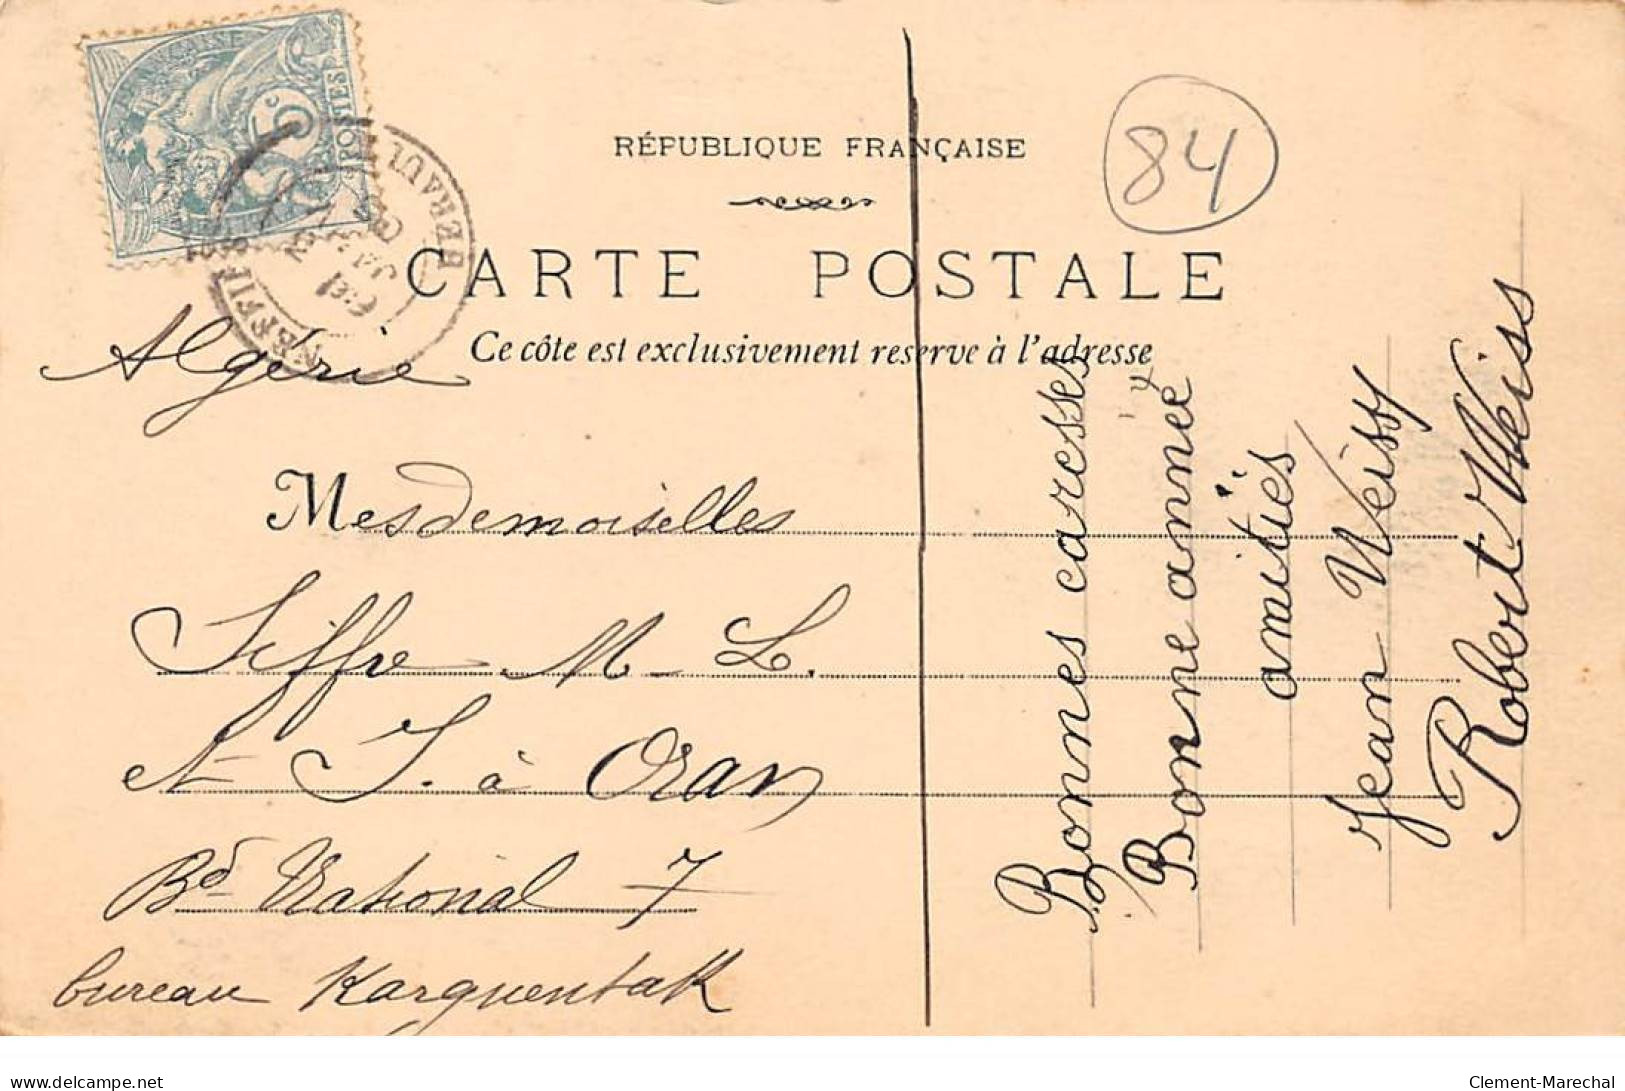 FRANÇAISE
5c
POSTES
NEFFIES
HERAULT
RÉPUBLIQUE FRANÇAISE
84
CARTE POSTALE
Ce côte est exclusivement reserve à l'adresse
Algérie
Mesdemoiselles
Siffre M-L.
et J. à Oran
Bd National 7
bureau Karguentah
Bonnes caresses
Bonne année
amitiés
Jean Weiss
Robert Weiss
delcampe.net
Clement-Marechal